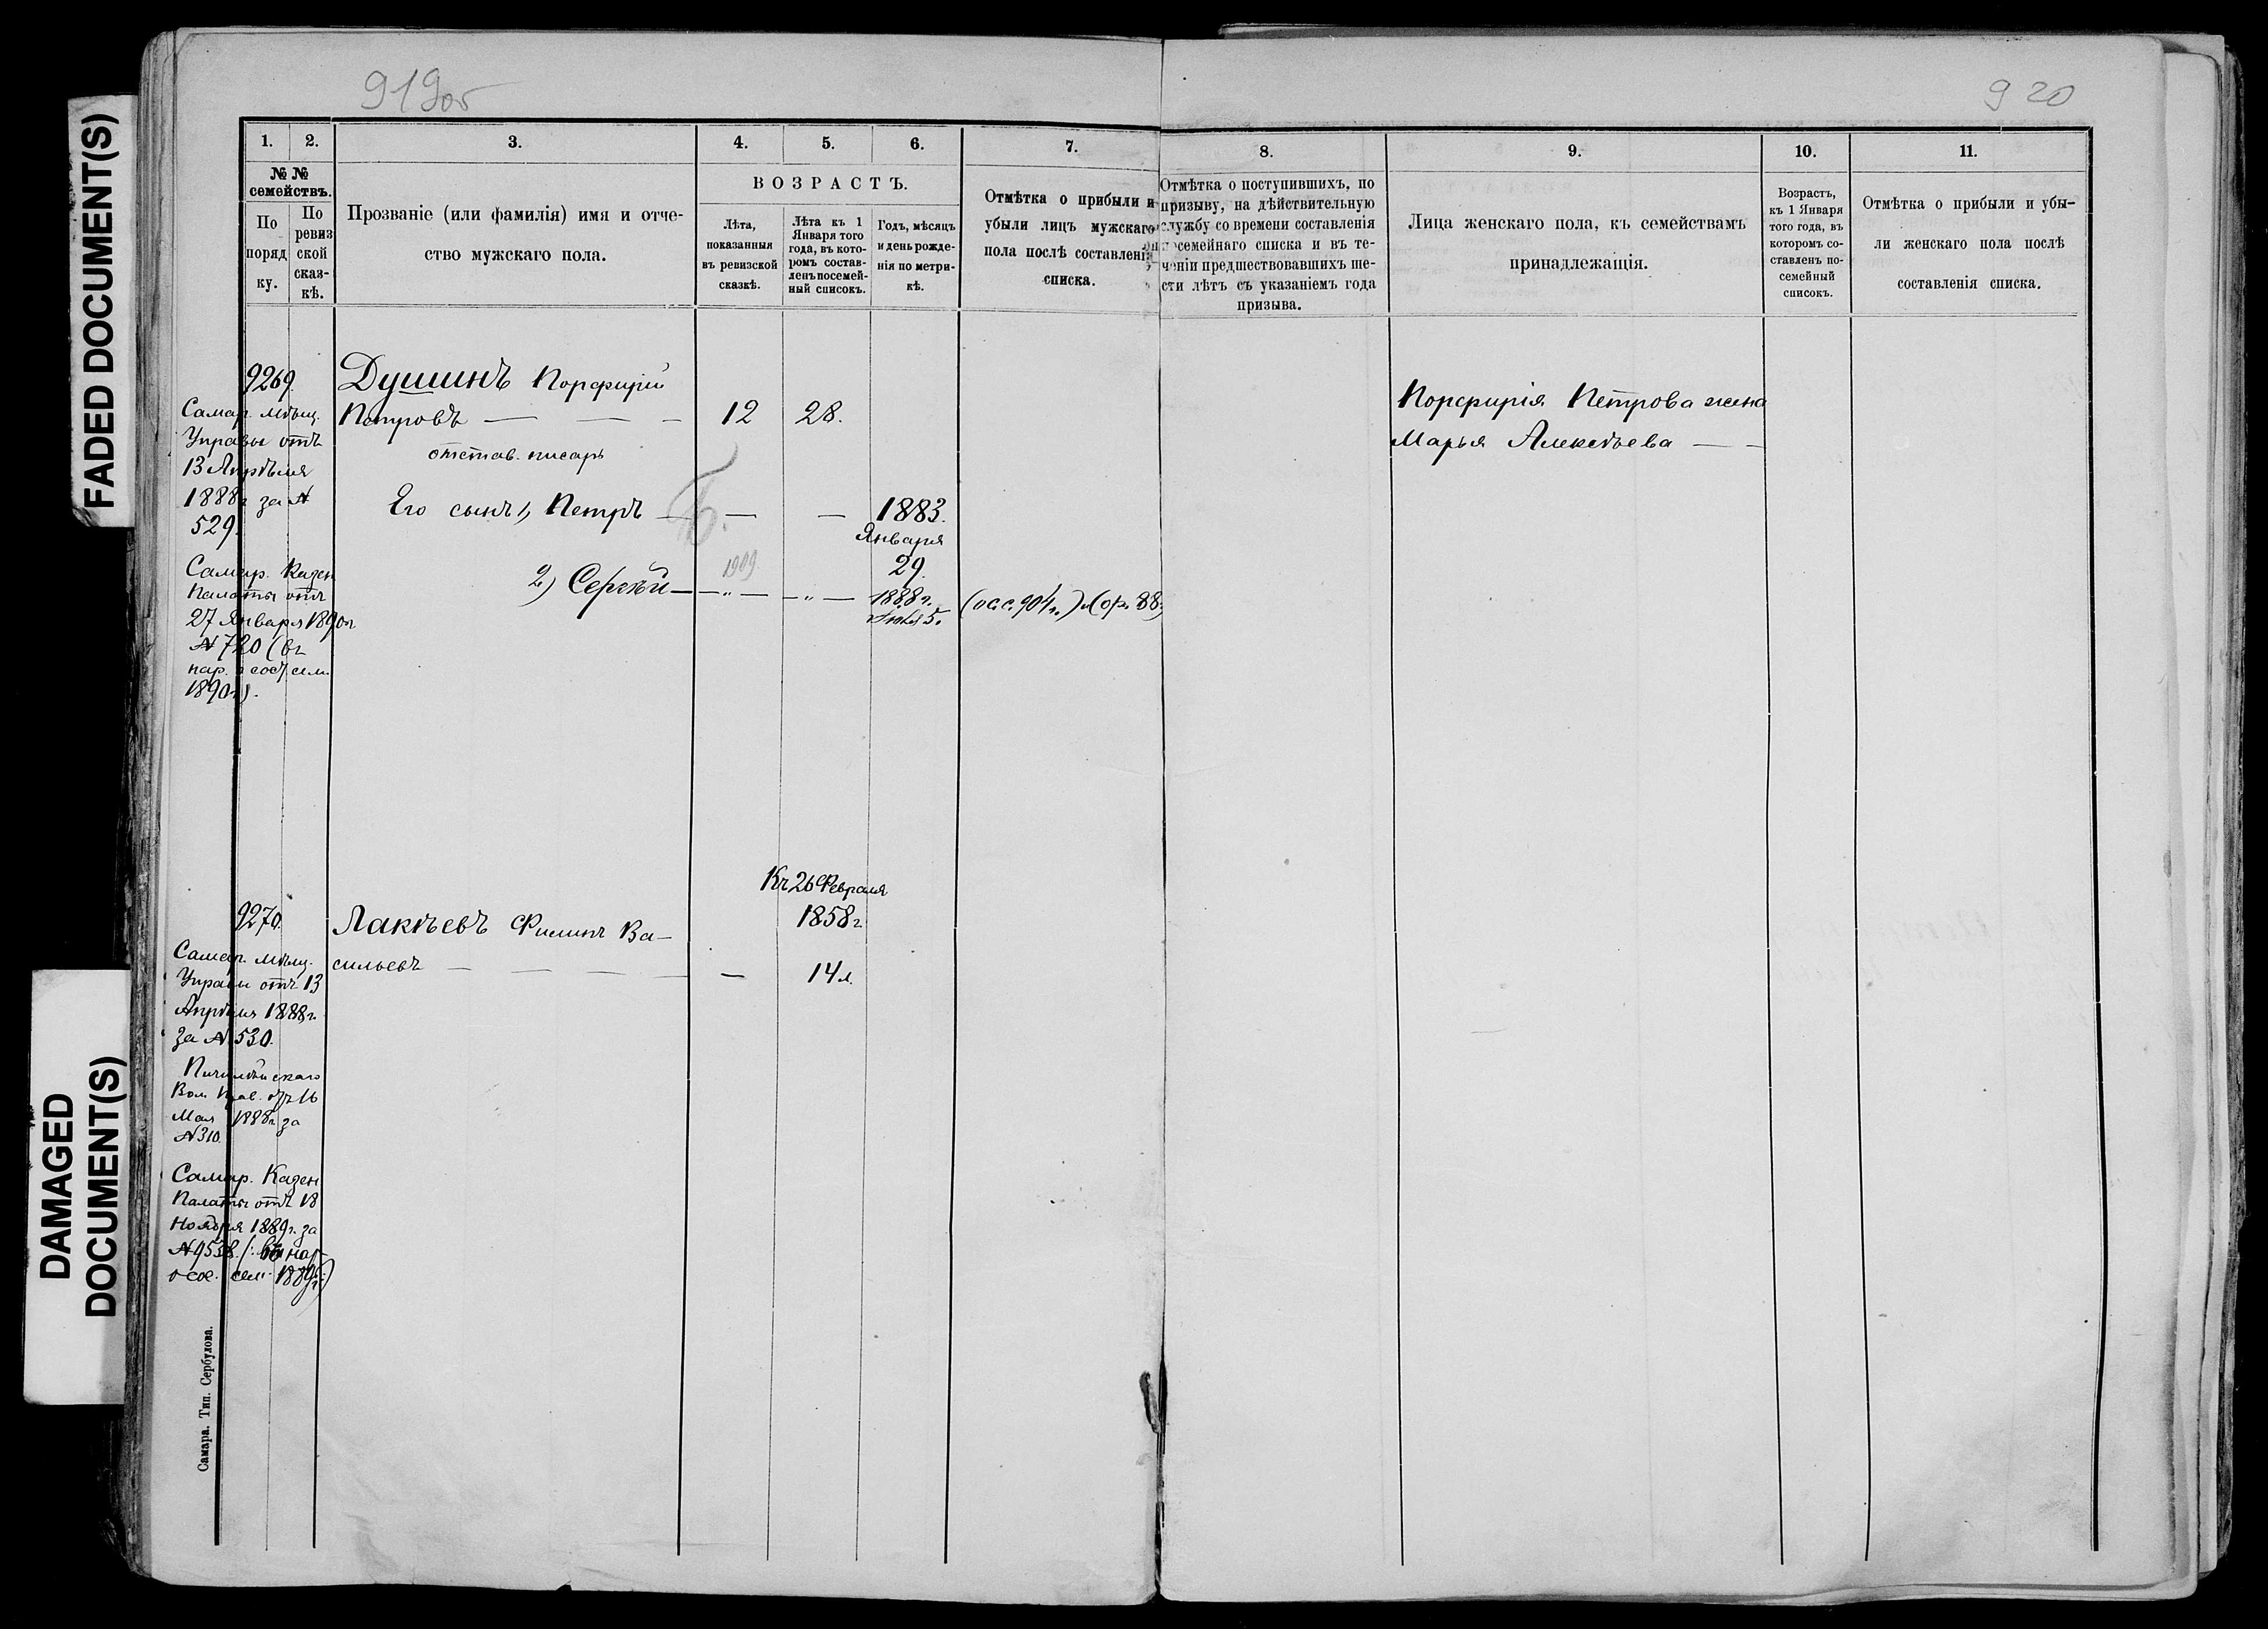 FADED DOCUMENT(S)
DAMAGED
DOCUMENT(S)
919об
920
1.
2.
3.
4.
5.
6.
7.
8.
9.
10.
11.
№ №
семействъ.
По
поряд
ку.
По
ревиз
ской
сказ-
кѣ.
Прозваніе (или фамилія) имя и отче-
ство мужскаго пола.
ВОЗРАСТЪ.
Лѣта,
показанныя
въ ревизской
сказкѣ.
Лѣта къ 1
Января того
года, въ кото-
ромъ состав-
ленъ посемей-
ный списокъ.
Годъ, мѣсяцъ
и день рожде-
нія по метри-
кѣ.
Отмѣтка о прибыли и
убыли лицъ мужскаго
пола послѣ составленія
списка.
Отмѣтка о поступившихъ, по
призыву, на дѣйствительную
службу со времени составленія
посемейнаго списка и въ те-
ченіи предшествовавшихъ ше-
сти лѣтъ съ указаніемъ года
призыва.
Лица женскаго пола, къ семействамъ
принадлежащія.
Возрастъ,
къ 1 Января
того года, въ
которомъ со-
ставленъ по-
семейный
списокъ.
Отмѣтка о прибыли и убы-
ли женскаго пола послѣ
составленія списка.
9269.
Самар. мѣщ.
Управы отъ
13 Апрѣля
1888г за №
529.
Самар. Казен
Палаты отъ
27 Января 1890г
№ 720 (въ
нар. о сост. сем.
1890г).
Душинъ Порфирій
Петровъ — — —
12
28.
отстав. писарь
Его сынъ 1, Петръ — — —
1883.
Января
29.
1909
2) Сергѣй — — „ — — „ —
1888г.
5.
(ос.с. 904г.)
Порфирія Петрова жена
Марья Алексѣева — —
9270.
Самар. мѣщ.
Управы отъ 13
Апрѣля 1888г.
за № 530.
Вол. Прав. отъ 16
Мая 1888г за
№ 310.
Самар. Казен
Палаты отъ 18
Ноября 1889г. за
о сос. сем. 1889г.)
Къ 26 Февраля
1858г
Лакѣевъ Филипъ Ва-
сильевъ — — — — —
14л.
Самара. Тип. Сербулова.